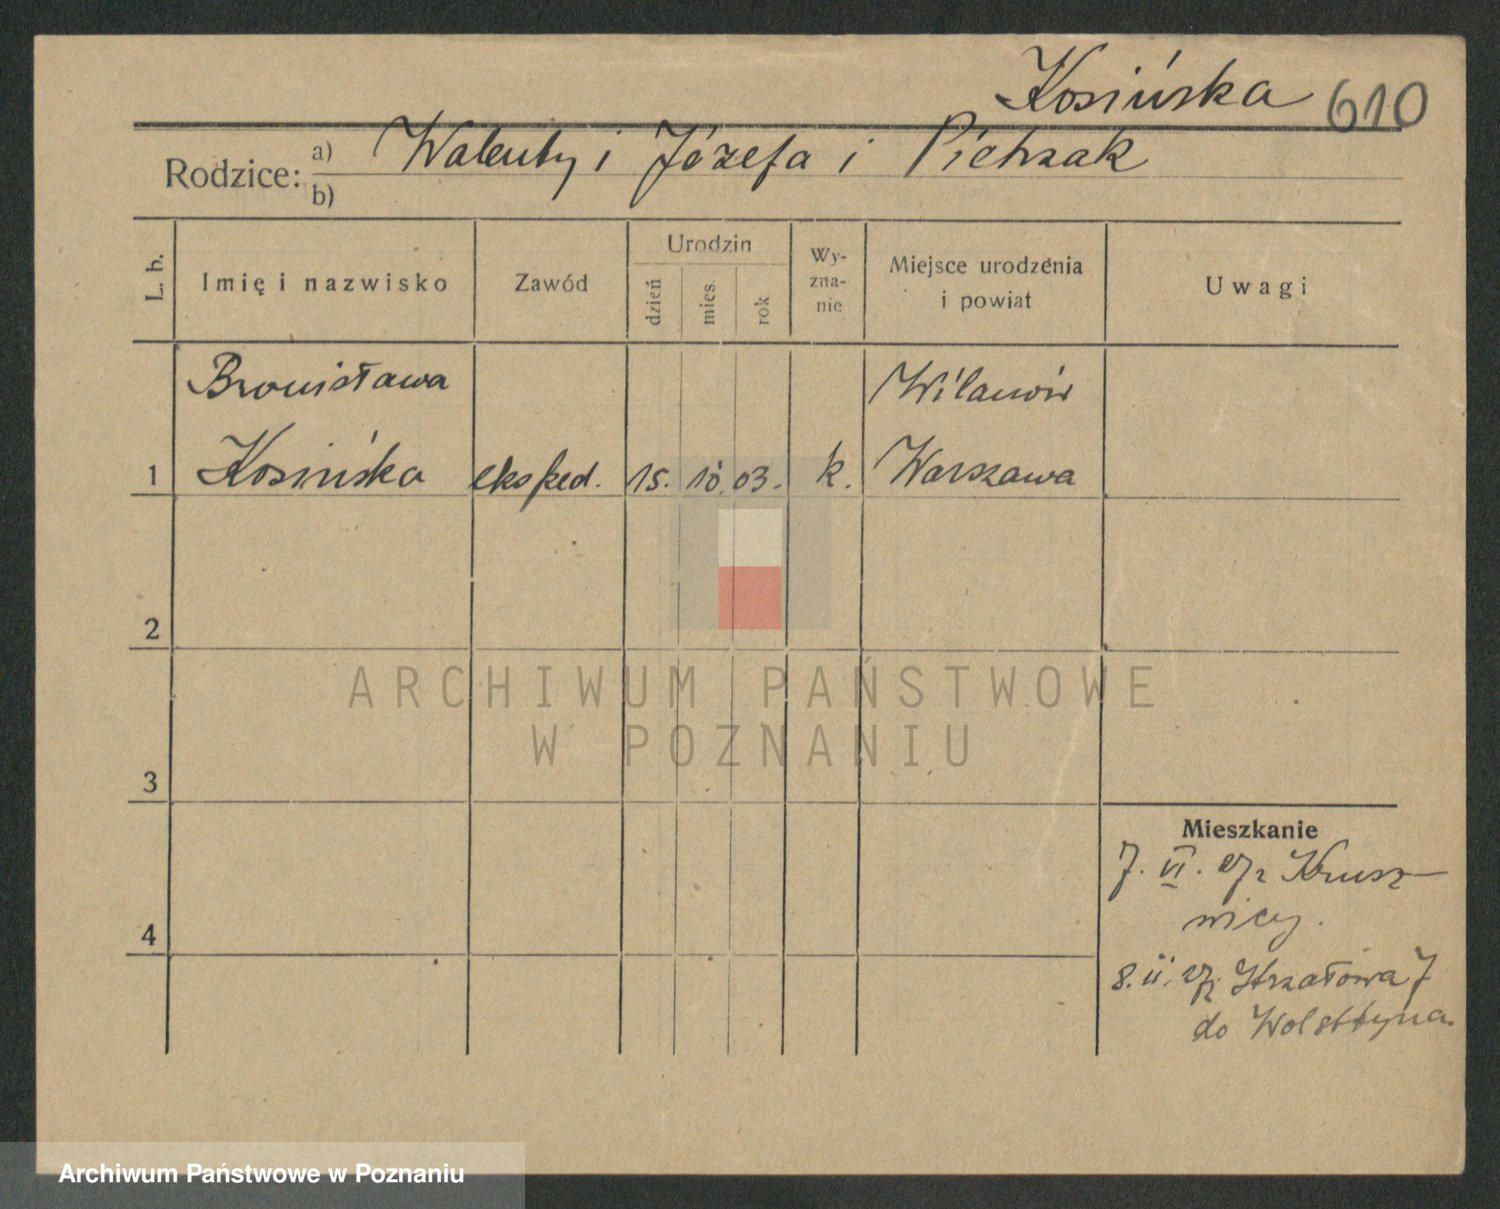 Kosińska 610
Rodzice: a) Walenty i Józefa i Pietrzak
b)
L. b. Imię i nazwisko Zawód Urodzin dzień mies. rok Wyznanie Miejsce urodzenia i powiat Uwagi
Bronisława Wilanów
1 Kosińska eksped. 15. 10. 03. k. Warszawa
2
ARCHIWUM PAŃSTWOWE
W POZNANIU
3
Mieszkanie
7. VI. 27 z Krusz-
wicy.
4
8. II. 27 Strzałowa 7
do Wolsztyna
Archiwum Państwowe w Poznaniu